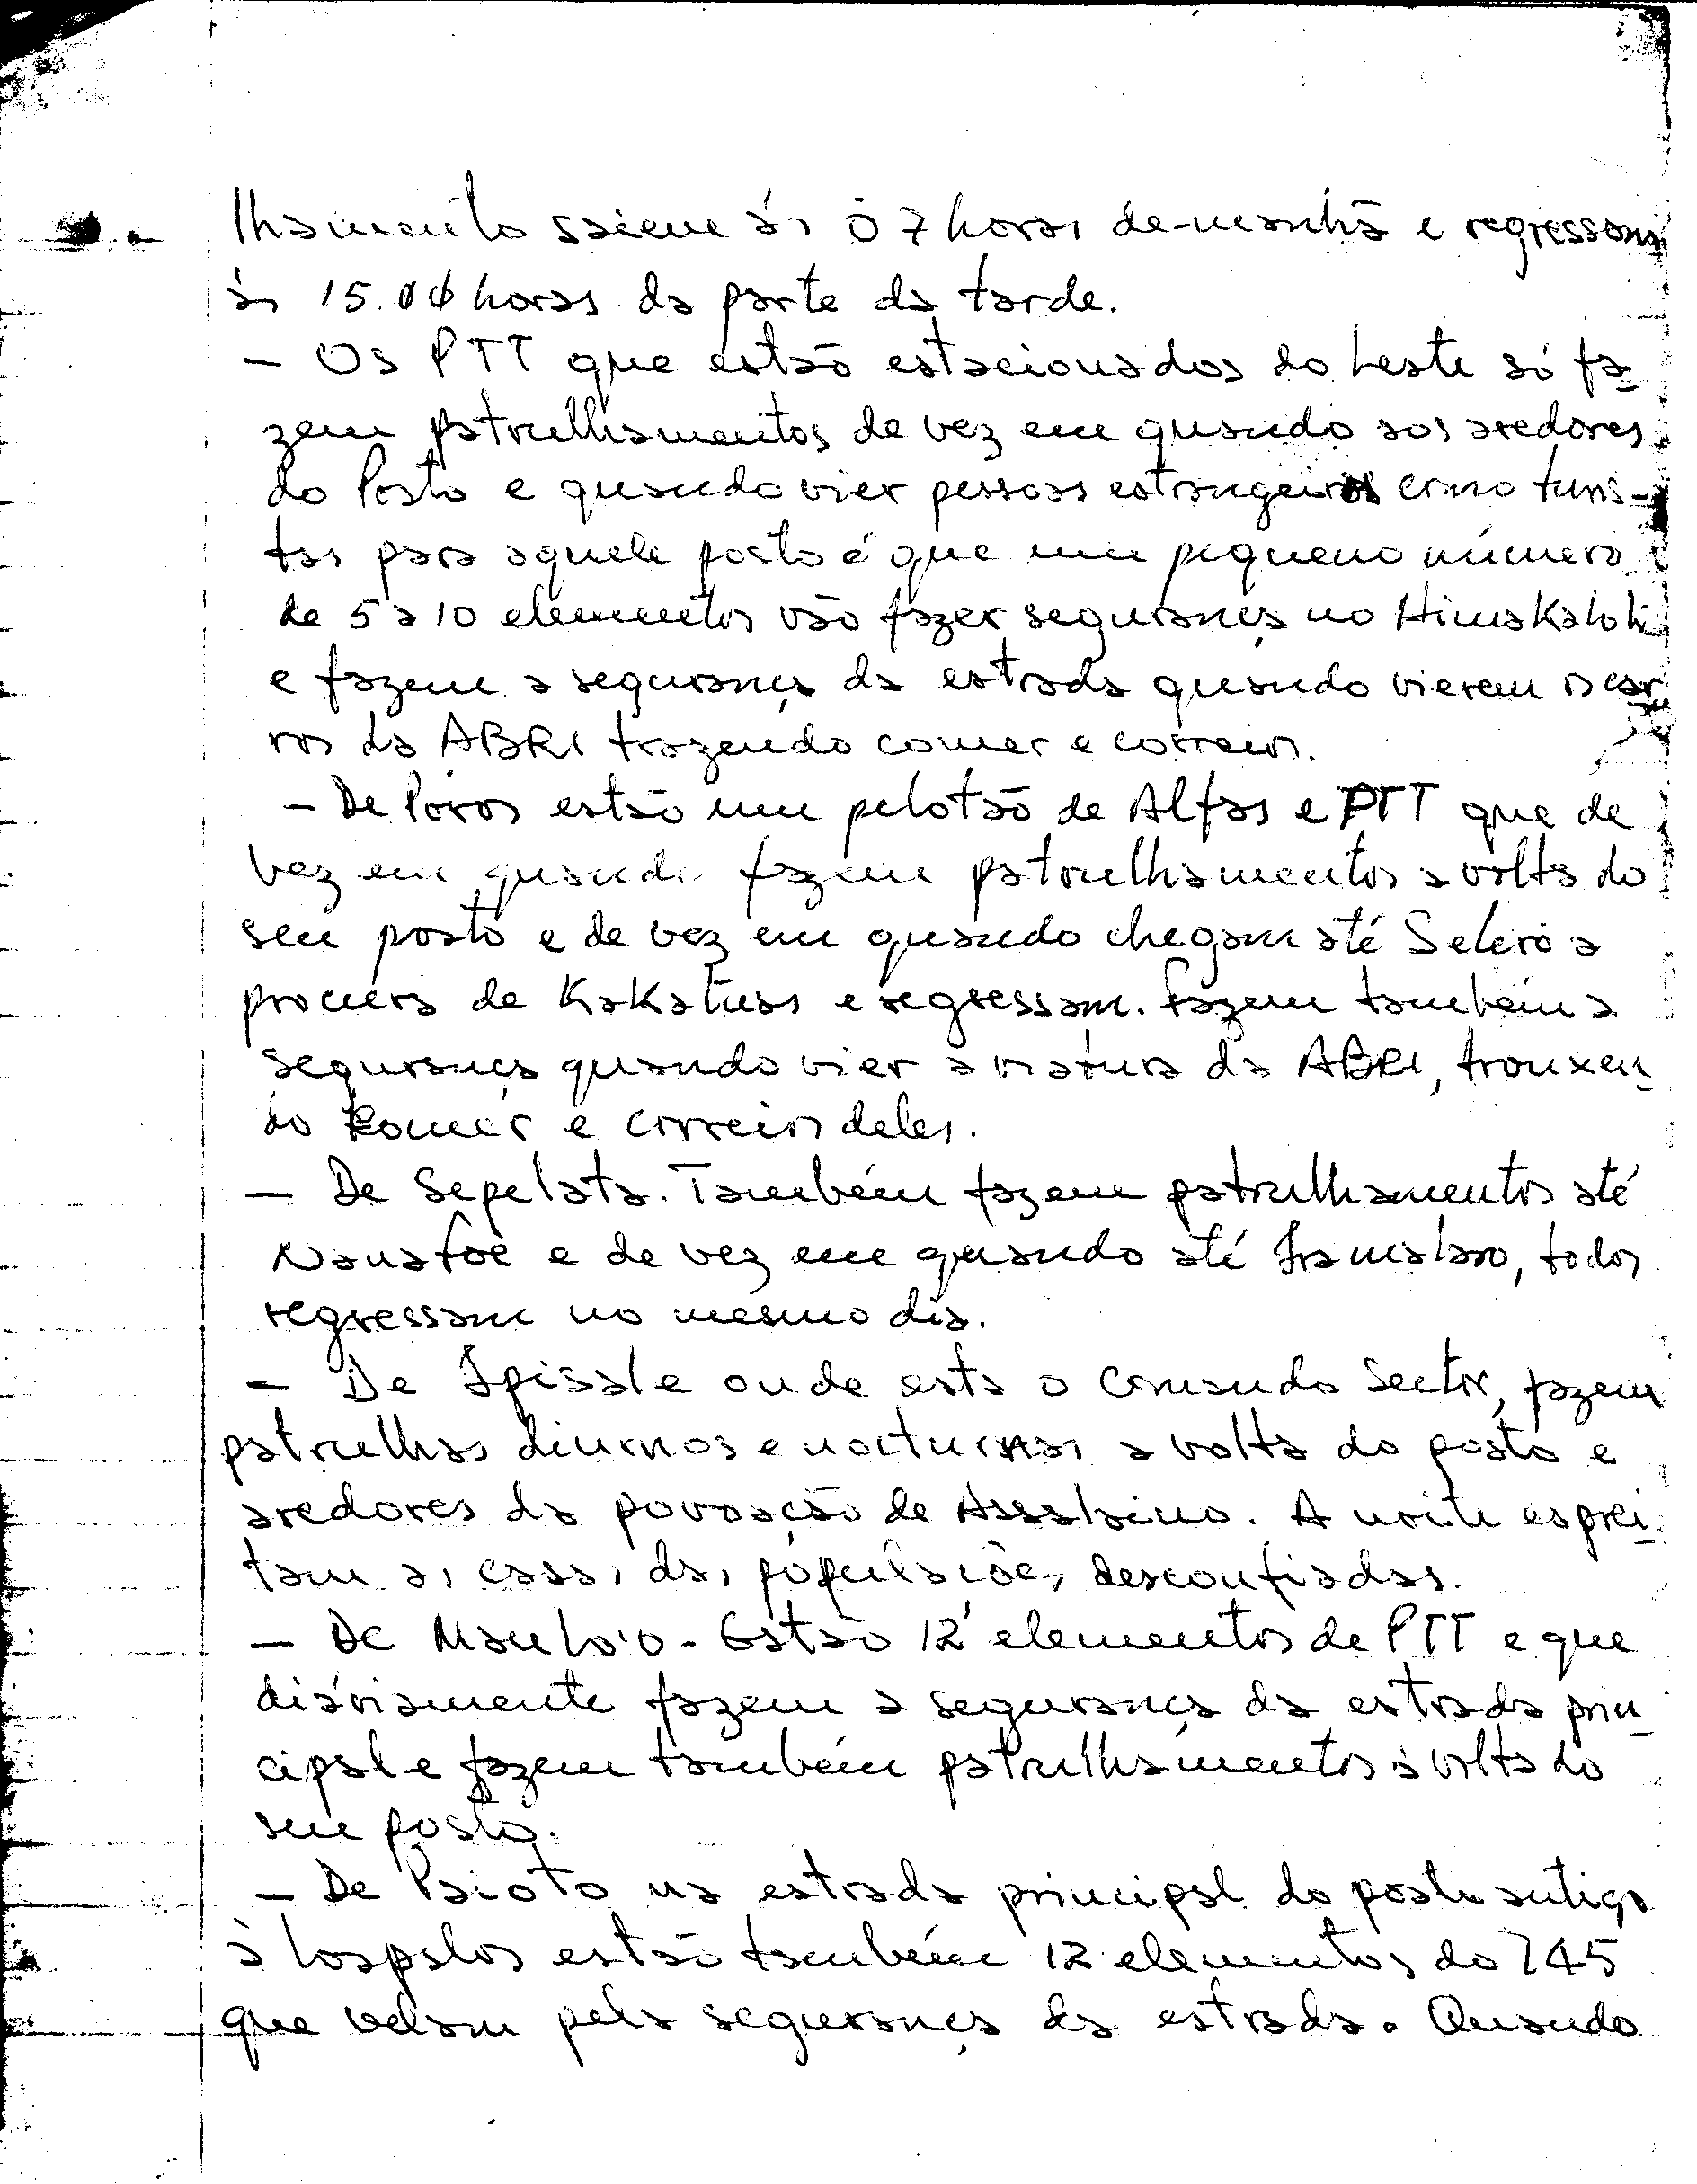 lhamento saiem ás 07 horas de-manhã e regressam
ás 15.00 horas da parte da tarde.
- Os PTT que estão estacionados do Leste só fa-
zem patrulhamentos de vez em quando aos aredores
do Posto e quando vier pessoas estrangeiras como turis-
tas para aquele posto é que um pequeno número
de 5 a 10 elementos vão fazer segurança no
e fazem a segurança da estrada quando vierem os car-
ros da ABRI trazendo comer e correios.
- De Poros estão um pelotão de Alfas e PTT que de
vez em quando fazem patrulhamentos a volta do
seu posto e de vez em quando chegam até Seleró a
procura de Kakatuas e regressam. Fazem também a
segurança quando vier a viatura da ABRI, trouxen-
do Comér e correios deles.
- De Sepelata. Também fazem patrulhamentos até
Nanafoé e de vez em quando até todos
regressam no mesmo dia.
- De onde esta o Comando Sector, fazem
patrulhas diurnos e nocturnas a volta do posto e
aredores da povoação de Assalaino. A noite esprei-
tam as casas das populações desconfiadas.
- De Maulo'o - Estão 12 elementos de PTT e que
diáriamente fazem a segurança da estrada prin-
cipal e fazem também patrulhamentos à volta do
seu posto.
- De Paioto na estrada principal do posto antigo
à Lospalos estão também 12 elementos do 745
que velam pela segurança da estrada. Quando